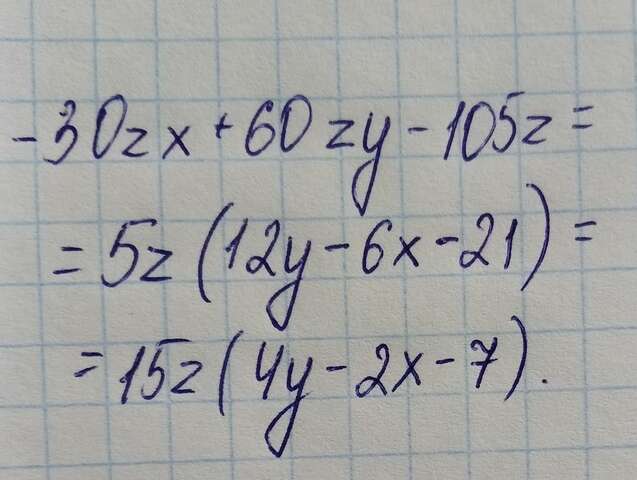 -30zx+60zy-105z=
=5z(12y-6x-21)=
=15z(4y-2x-7).